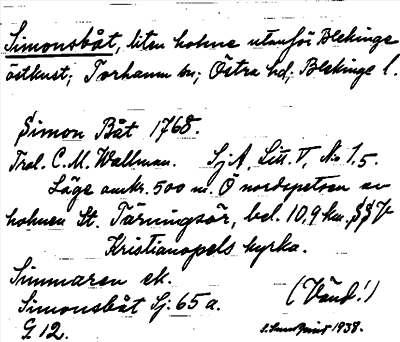 Simonsbåt, liten holme utanför Blekinge
östkust; Torhamn sn; Östra hd; Blekinge l.
Simon Båt 1768.
Trol. C. M. Wallman. SjA, Litt. V, No 1,5.
Läge omkr. 500 m. Ö nordspetsen av
holmen St. Tärningsör, bel. 10,9 km. SSV
Kristianopels kyrka.
Simmaren ek.
Simonsbåt Sj. 65 a. (Vänd!)
G 12. 1938.